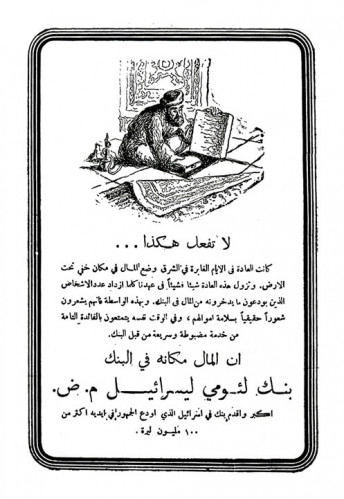 لا تفعل هكذا ...
كانت العادة فى الايام الغابرة في الشرق وضع المال في مكان خفي تحت
الارض. وتزول هذه العادة شيئا فشيئاً فى عهدنا كلما ازداد عدد الاشخاص
الذين يودعون ما يدخرونه من المال فى البنك. وبهذه الواسطة فانهم يشعرون
شعوراً حقيقياً بسلامة اموالهم، وفي الوقت نفسه يتمتعون بالفائدة التامة
من خدمة مضبوطة وسريعة من قبل البنك.
ان المال مكانه في البنك
بنك لئومي ليسرائيل م. ض.
اكبر واقدم بنك في اسرائيل الذي اودع الجمهور في ايديه اكثر من
١٠٠ مليون ليرة.